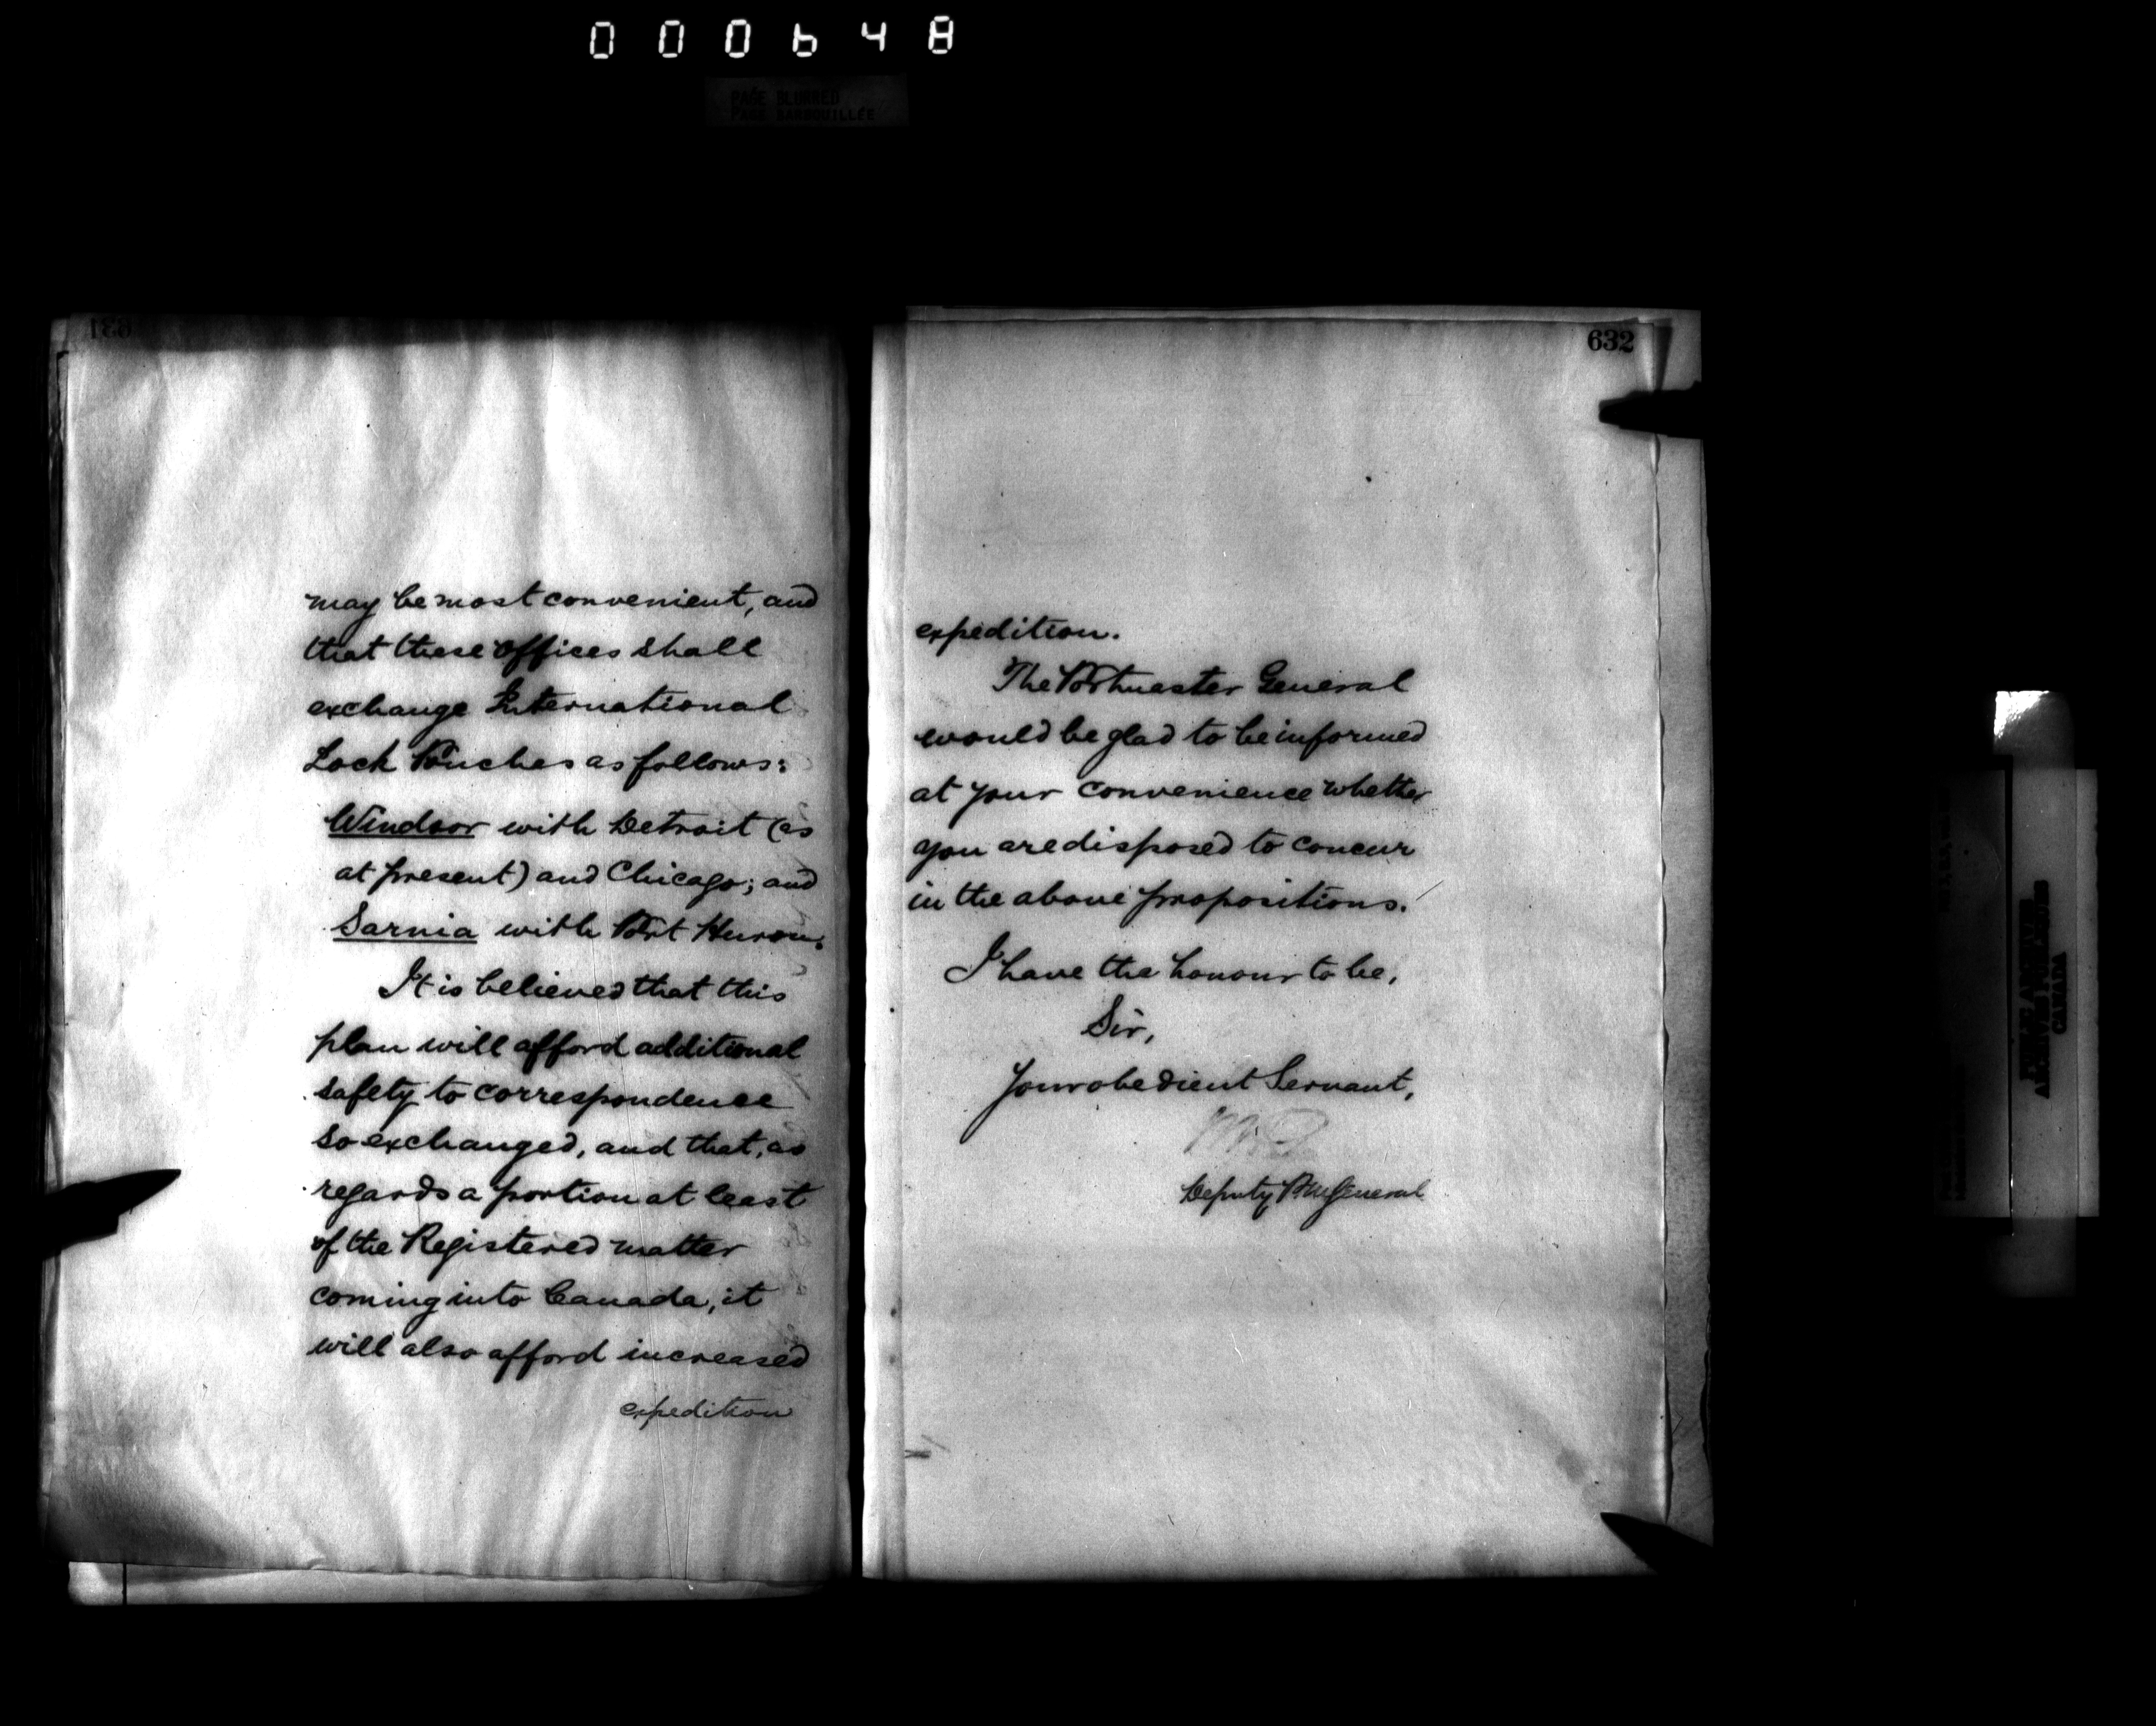 000648
PAGE BLURRED
PAGE BARBOUILLÉE
631
may be most convenient, and
that these offices shall
exchange International
Lock Pouches as follows:
Windsor with Detroit (as
at present) and Chicago; and
Sarnia with Port Huron.
It is believed that this
plan will afford additional
safety to correspondence
so exchanged, and that, as
regards a portion at least
of the Registered matter
coming into Canada, it
will also afford increased
expedition
632
expedition.
The Postmaster General
would be glad to be informed
at your convenience whether
you are disposed to concur
in the above propositions.
I have the honour to be,
Sir,
Your obedient Servant,
Deputy P.M. General
PUBLIC ARCHIVES
ARCHIVES PUBLIQUES
CANADA